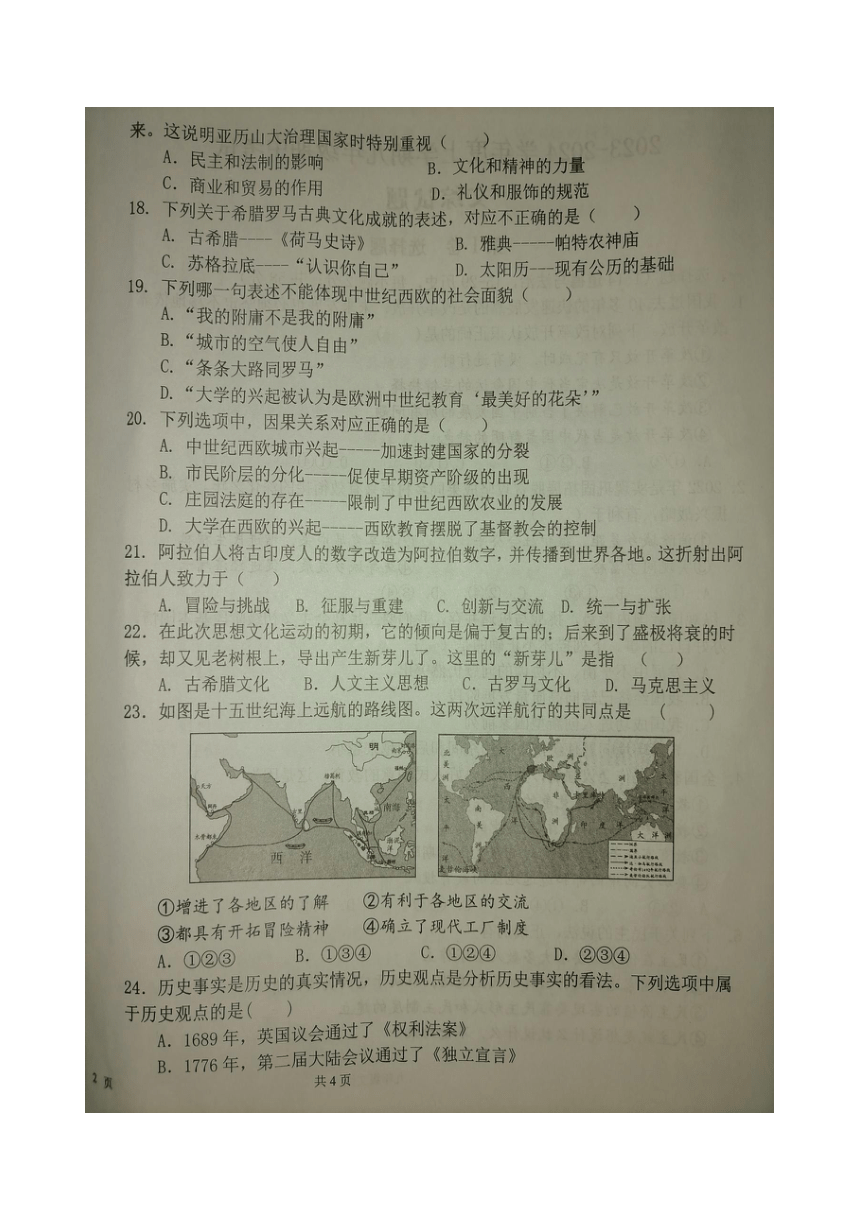 来。这说明亚历山大治理国家时特别重视（　　）
A. 民主和法制的影响　　B. 文化和精神的力量
C. 商业和贸易的作用　　D. 礼仪和服饰的规范
18. 下列关于希腊罗马古典文化成就的表述，对应不正确的是（　　）
A. 古希腊----《荷马史诗》　　B. 雅典-----帕特农神庙
C. 苏格拉底----“认识你自己”　　D. 太阳历---现有公历的基础
19. 下列哪一句表述不能体现中世纪西欧的社会面貌（　　）
A. “我的附庸不是我的附庸”
B. “城市的空气使人自由”
C. “条条大路同罗马”
D. “大学的兴起被认为是欧洲中世纪教育‘最美好的花朵’”
20. 下列选项中，因果关系对应正确的是（　　）
A. 中世纪西欧城市兴起-----加速封建国家的分裂
B. 市民阶层的分化-----促使早期资产阶级的出现
C. 庄园法庭的存在-----限制了中世纪西欧农业的发展
D. 大学在西欧的兴起-----西欧教育摆脱了基督教会的控制
21. 阿拉伯人将古印度人的数字改造为阿拉伯数字，并传播到世界各地。这折射出阿
拉伯人致力于（　　）
A. 冒险与挑战　B. 征服与重建　C. 创新与交流　D. 统一与扩张
22. 在此次思想文化运动的初期，它的倾向是偏于复古的；后来到了盛极将衰的时
候，却又见老树根上，导出产生新芽儿了。这里的“新芽儿”是指　（　　）
A. 古希腊文化　B. 人文主义思想　C. 古罗马文化　D. 马克思主义
23. 如图是十五世纪海上远航的路线图。这两次远洋航行的共同点是　（　　）
明
南海
西　洋
北美洲
大西洋
欧洲
非洲
南美洲
印度洋
太平洋
大洋洲
麦哲伦海峡
①增进了各地区的了解　②有利于各地区的交流
③都具有开拓冒险精神　④确立了现代工厂制度
A. ①②③　B. ①③④　C. ①②④　D. ②③④
24. 历史事实是历史的真实情况，历史观点是分析历史事实的看法。下列选项中属
于历史观点的是（　　）
A. 1689年，英国议会通过了《权利法案》
B. 1776年，第二届大陆会议通过了《独立宣言》
2 页
共4页